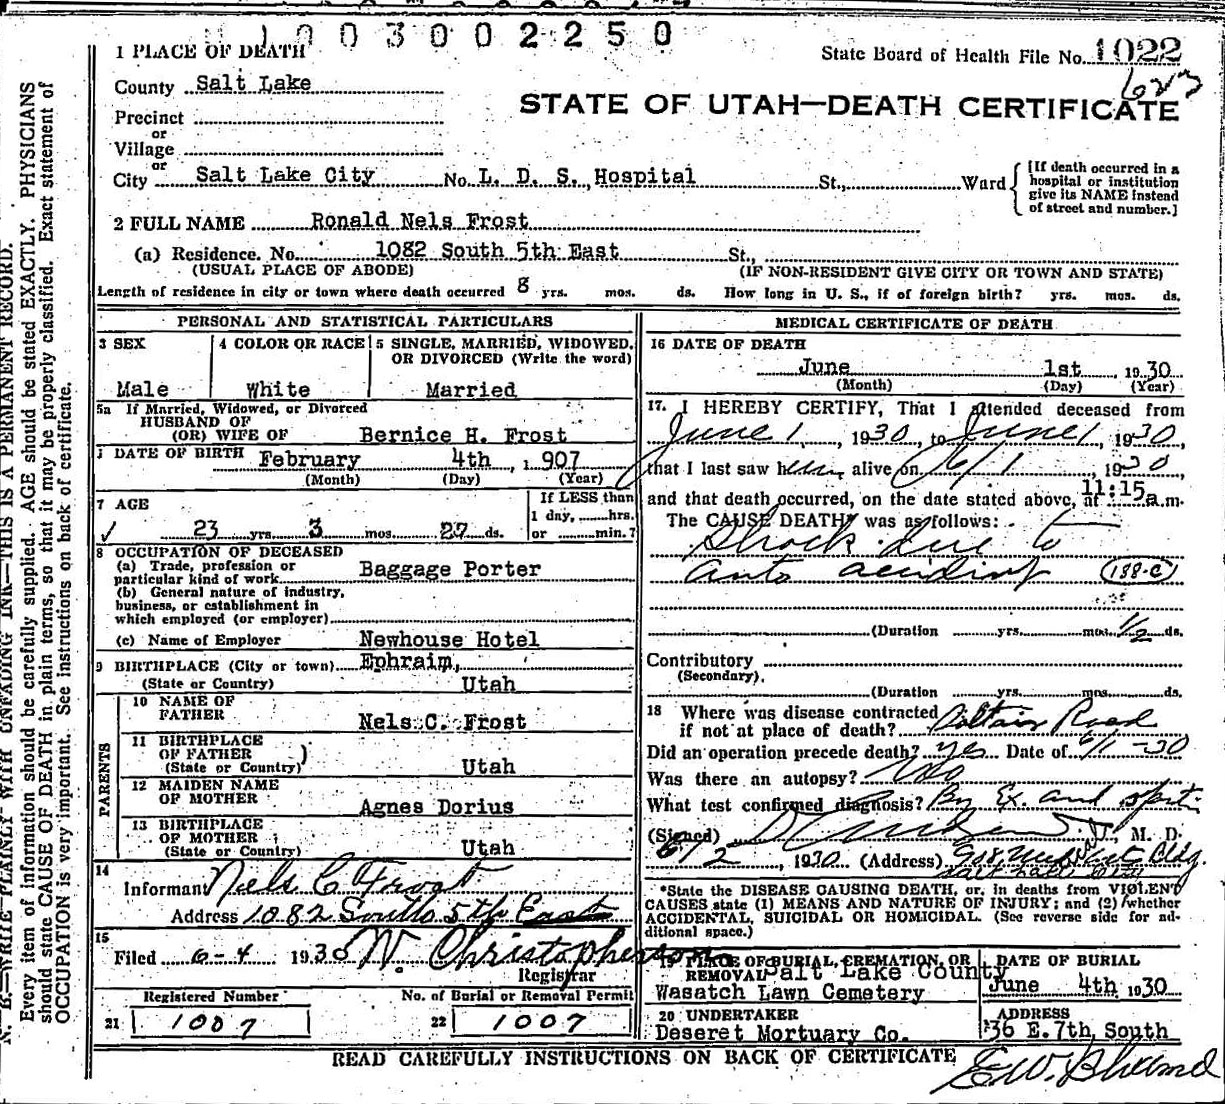 1003002250
1 PLACE OF DEATH
State Board of Health File No. 1022
623
County Salt Lake
STATE OF UTAH—DEATH CERTIFICATE
Precinct
or
Village
or
City Salt Lake City No. L. D. S. Hospital St., Ward
[If death occurred in a
hospital or institution
give its NAME instead
of street and number.]
2 FULL NAME Ronald Nels Frost
(a) Residence. No. 1082 South 5th East St.,
(USUAL PLACE OF ABODE) (IF NON-RESIDENT GIVE CITY OR TOWN AND STATE)
Length of residence in city or town where death occurred 8 yrs. mos. ds. How long in U. S., if of foreign birth? yrs. mos. ds.
PERSONAL AND STATISTICAL PARTICULARS
3 SEX 4 COLOR OR RACE 5 SINGLE, MARRIED, WIDOWED,
OR DIVORCED (Write the word)
Male White Married
5a If Married, Widowed, or Divorced
HUSBAND OF
(OR) WIFE OF Bernice H. Frost
DATE OF BIRTH February 4th, 1907
(Month) (Day) (Year)
7 AGE If LESS than
1 day, hrs.
23 yrs. 3 mos. 27 ds. or min.?
8 OCCUPATION OF DECEASED
(a) Trade, profession or
particular kind of work Baggage Porter
(b) General nature of industry,
business, or establishment in
which employed (or employer)
(c) Name of Employer Newhouse Hotel
9 BIRTHPLACE (City or town) Ephraim,
(State or Country) Utah
PARENTS
10 NAME OF
FATHER Nels C. Frost
11 BIRTHPLACE
OF FATHER
(State or Country) Utah
12 MAIDEN NAME
OF MOTHER Agnes Dorius
13 BIRTHPLACE
OF MOTHER
(State or Country) Utah
14
Informant Nels C Frost
Address 1082 South 5th East
15
Filed 6-4 1930 W. Christopherson
Registrar
Registered Number No. of Burial or Removal Permit
21 1007 22 1007
MEDICAL CERTIFICATE OF DEATH
16 DATE OF DEATH
June 1st, 1930
(Month) (Day) (Year)
17. I HEREBY CERTIFY, That I attended deceased from
June 1, 1930, to June 1, 1930,
that I last saw him alive on 6/1, 1930
and that death occurred, on the date stated above, at 11:15 a.m.
The CAUSE DEATH* was as follows:
Shock due to
auto accident 188-c
(Duration yrs. mos. 1/2 ds.
Contributory
(Secondary).
(Duration yrs. mos. ds.
18 Where was disease contracted
if not at place of death? Saltair Road
Did an operation precede death? yes Date of 6/1-30
Was there an autopsy? No
What test confirmed diagnosis? By Ex. and
(Signed) M. D.
6/2, 1930 (Address) Bldg.
Salt Lake City
*State the DISEASE CAUSING DEATH, or, in deaths from VIOLENT
CAUSES state (1) MEANS AND NATURE OF INJURY; and (2) whether
ACCIDENTAL, SUICIDAL OR HOMICIDAL. (See reverse side for ad-
ditional space.)
19 PLACE OF BURIAL, CREMATION, OR DATE OF BURIAL
REMOVAL Salt Lake County
Wasatch Lawn Cemetery June 4th 1930
20 UNDERTAKER ADDRESS
Deseret Mortuary Co. 36 E. 7th, South
READ CAREFULLY INSTRUCTIONS ON BACK OF CERTIFICATE
N. B.—WRITE PLAINLY WITH UNFADING INK—THIS IS A PERMANENT RECORD.
Every item of information should be carefully supplied. AGE should be stated EXACTLY. PHYSICIANS
should state CAUSE OF DEATH in plain terms, so that it may be properly classified. Exact statement of
OCCUPATION is very important. See instructions on back of certificate.